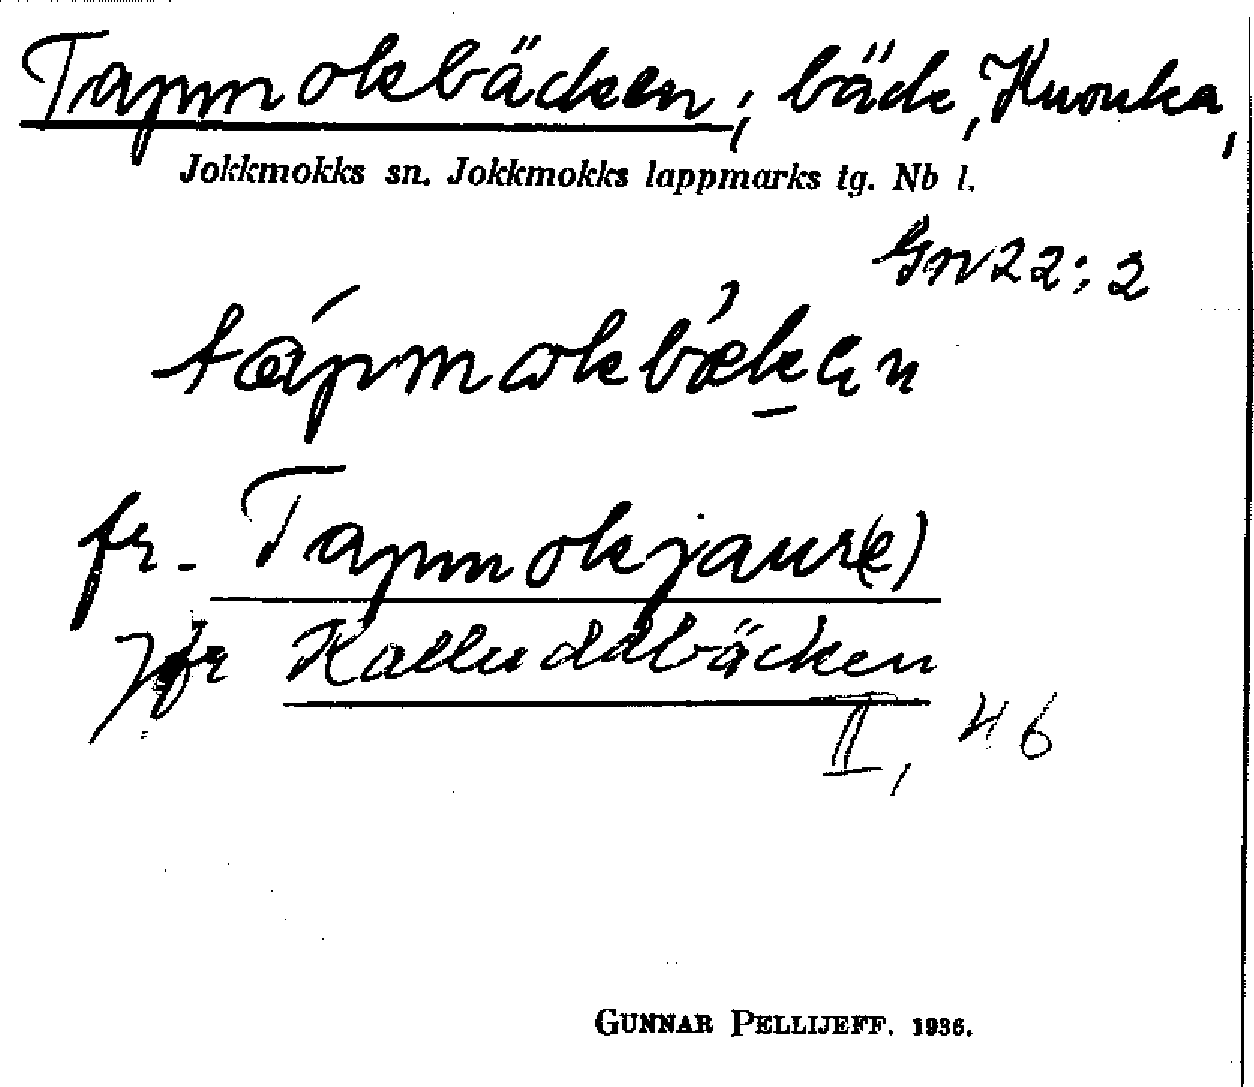 Tapmokbäcken, bäck, Kuouka,
Jokkmokks sn. Jokkmokks lappmarks tg. Nb l.
Gnv 22:2
tápmokbækən
fr. Tapmokjaur(e)
Jfr Kalluddbäcken
II, 46
GUNNAR PELLIJEFF. 1936.